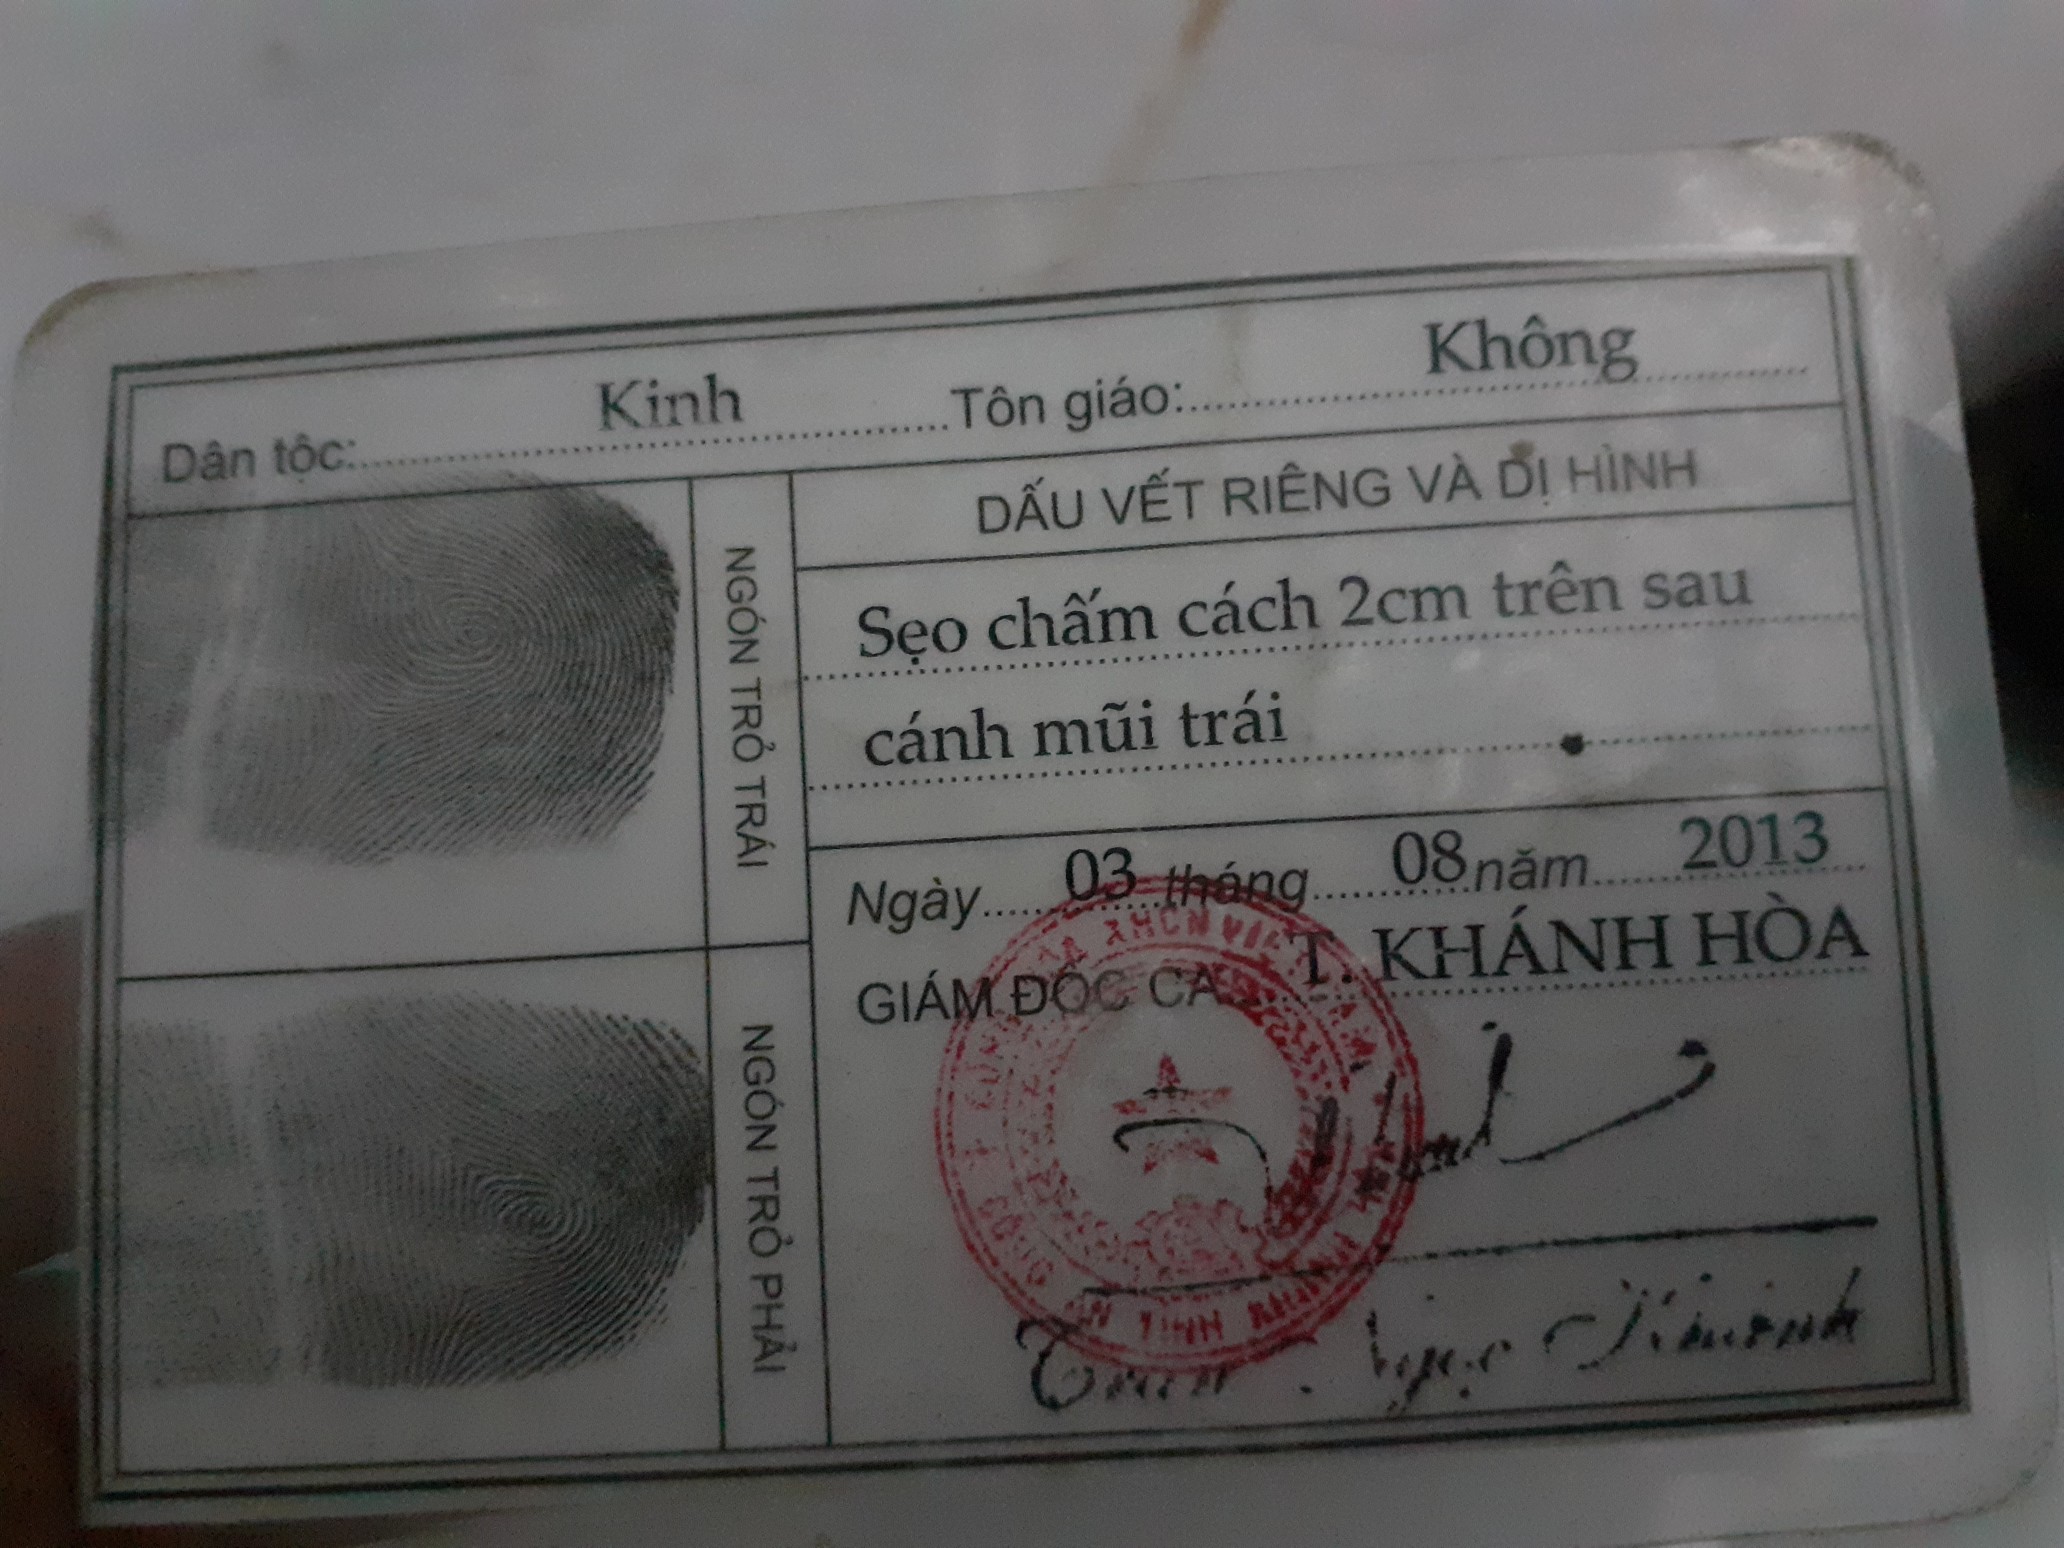 Dân tộc: Kinh Tôn giáo: Không
NGÓN TRỎ TRÁI
NGÓN TRỎ PHẢI
DẤU VẾT RIÊNG VÀ DỊ HÌNH
Sẹo chấm cách 2cm trên sau
cánh mũi trái
Ngày 03 tháng 08 năm 2013
GIÁM ĐỐC CA T. KHÁNH HÒA